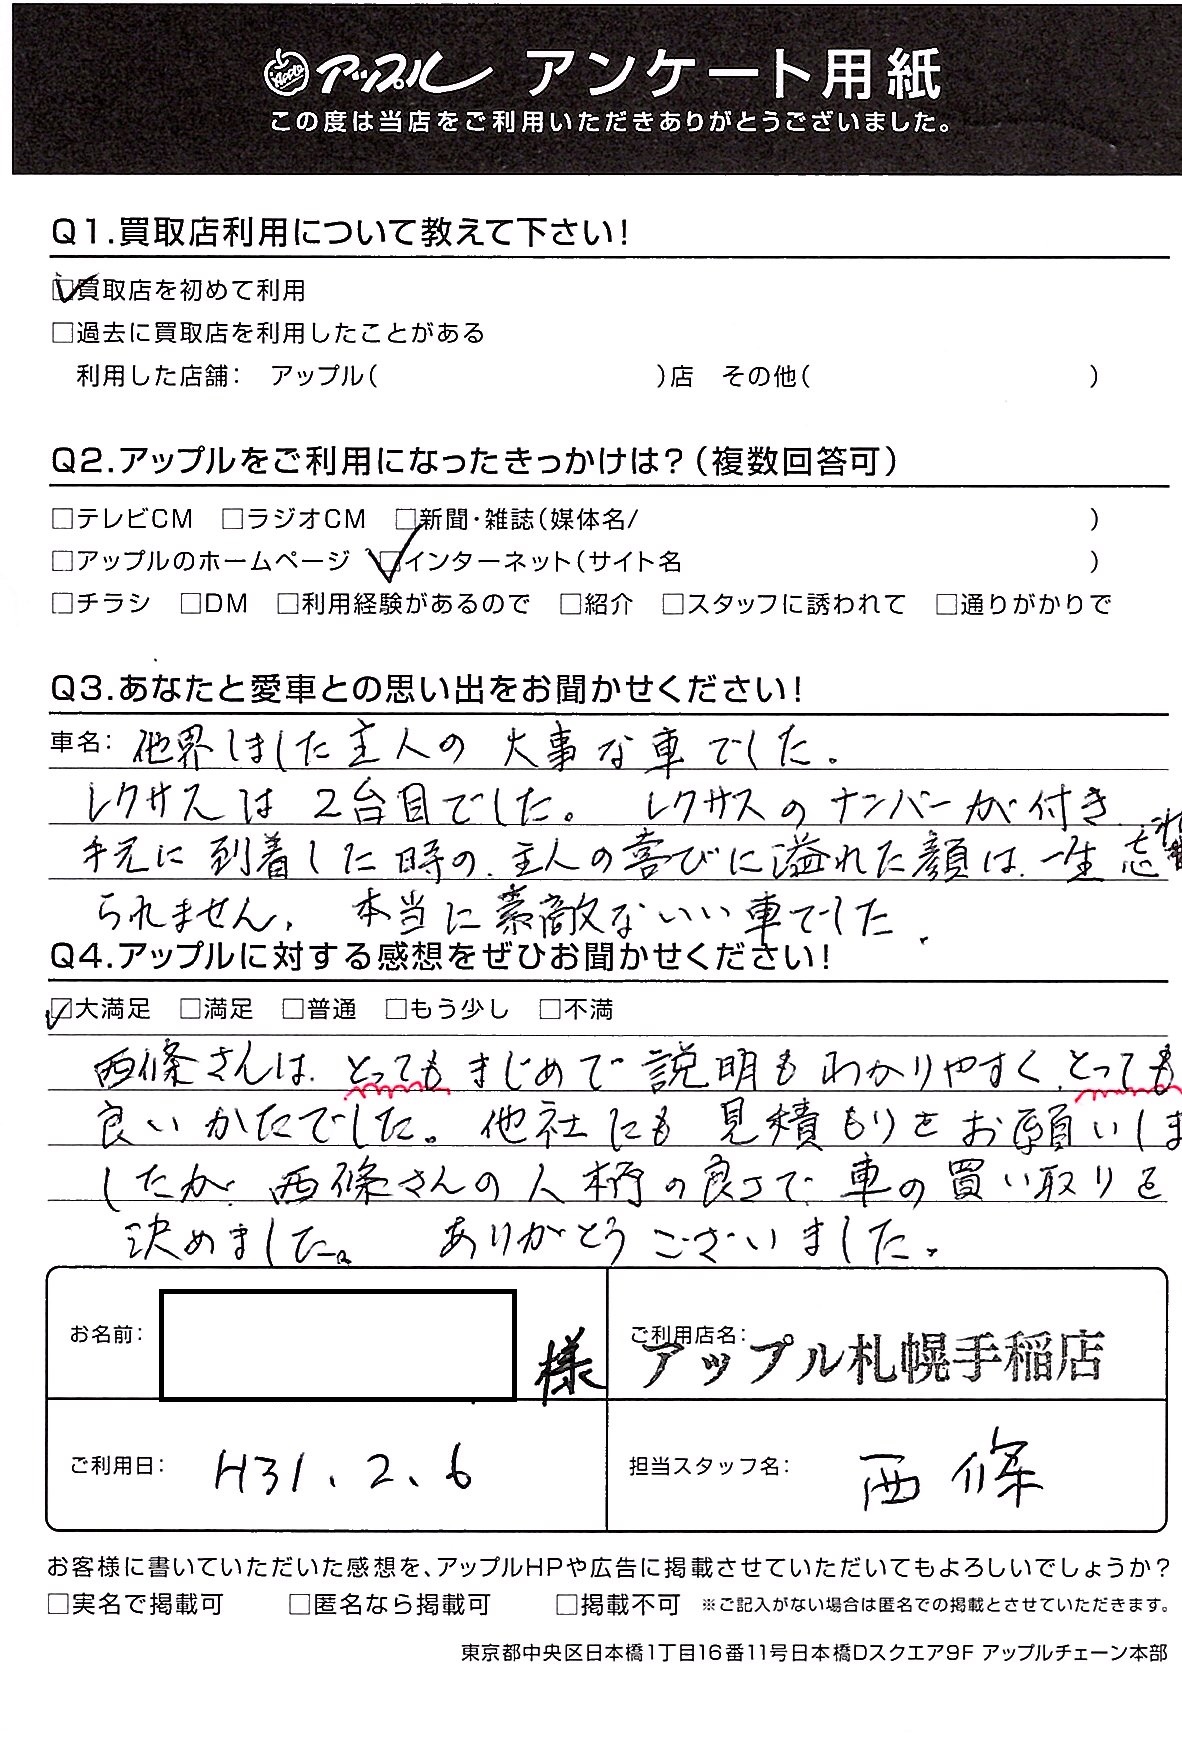 Apple アップル アンケート用紙
この度は当店をご利用いただきありがとうございました。
Q1.買取店利用について教えて下さい!
☑買取店を初めて利用
□過去に買取店を利用したことがある
利用した店舗: アップル( )店 その他( )
Q2.アップルをご利用になったきっかけは?(複数回答可)
□テレビCM □ラジオCM □新聞・雑誌(媒体名/ )
□アップルのホームページ ☑インターネット(サイト名 )
□チラシ □DM □利用経験があるので □紹介 □スタッフに誘われて □通りがかりで
Q3.あなたと愛車との思い出をお聞かせください!
車名: 他界しました主人の大事な車でした。
レクサスは2台目でした。 レクサスのナンバーが付き
手元に到着した時の、主人の喜びに溢れた顔は、一生忘れ
られません。 本当に素敵ないい車でした。
Q4.アップルに対する感想をぜひお聞かせください!
☑大満足 □満足 □普通 □もう少し □不満
西條さんは、とってもまじめで説明もわかりやすく、とっても
良いかたでした。他社にも見積もりをお願いしま
したが、西條さんの人柄の良さで、車の買い取りを
決めました。 ありがとうございました。
お名前: 様
ご利用店名: アップル札幌手稲店
ご利用日: H31.2.6
担当スタッフ名: 西條
お客様に書いていただいた感想を、アップルHPや広告に掲載させていただいてもよろしいでしょうか?
□実名で掲載可 □匿名なら掲載可 □掲載不可 ※ご記入がない場合は匿名での掲載とさせていただきます。
東京都中央区日本橋1丁目16番11号日本橋Dスクエア9F アップルチェーン本部